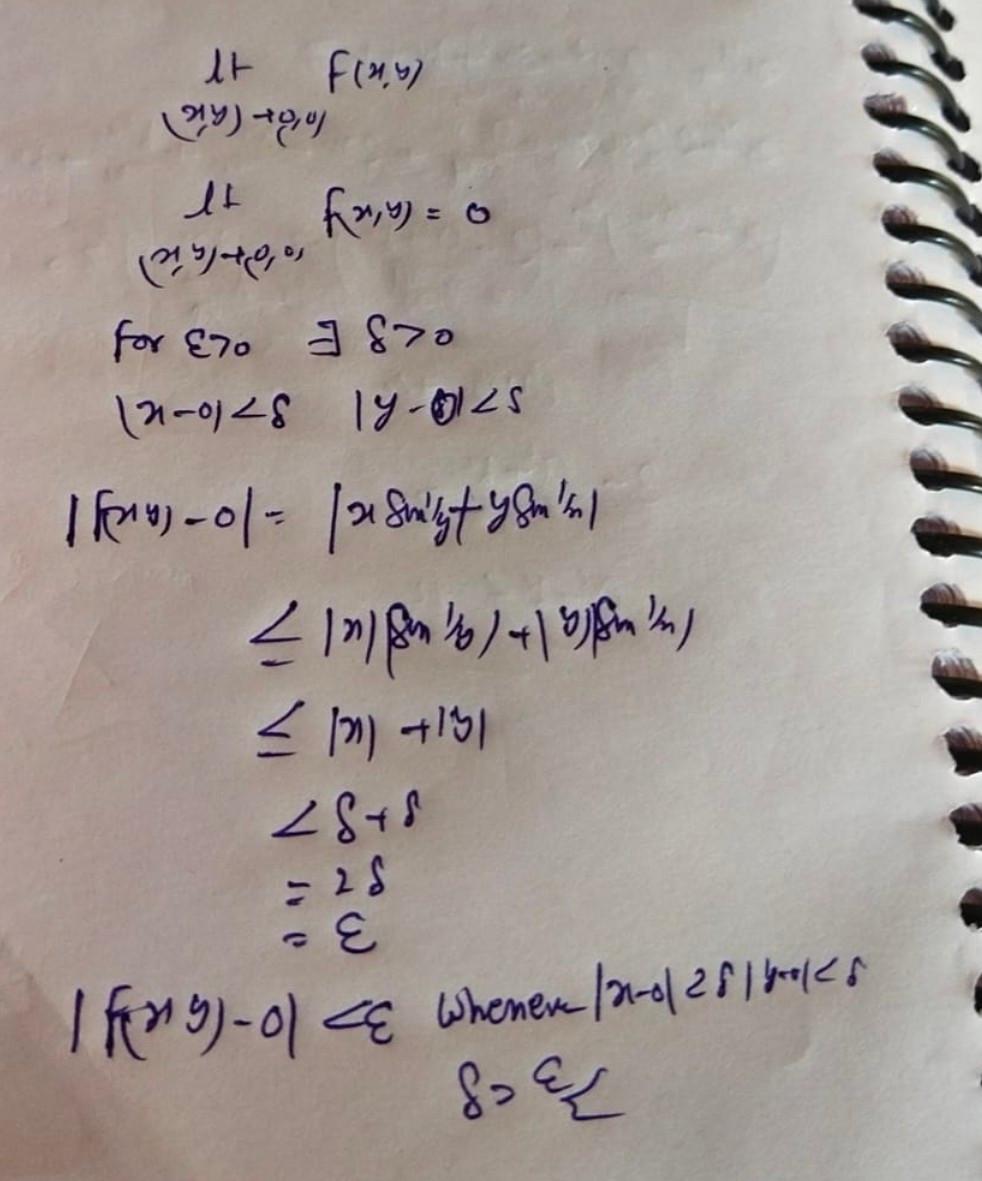 lt f(x,y)
(x,y)→(0,0)
lt f(x,y) = 0
(x,y)→(0,0)
for ε>0 ∃ δ>0
|x-0|<δ |y-0|<δ
|f(x,y)-0| = |x sin 1/y + y sin 1/x|
≤ |x||sin 1/y| + |y||sin 1/x|
≤ |x| + |y|
< δ+δ
= 2δ
= ε
|f(x,y)-0| < ε whenever |x-0|<δ |y-0|<δ
δ = ε/2